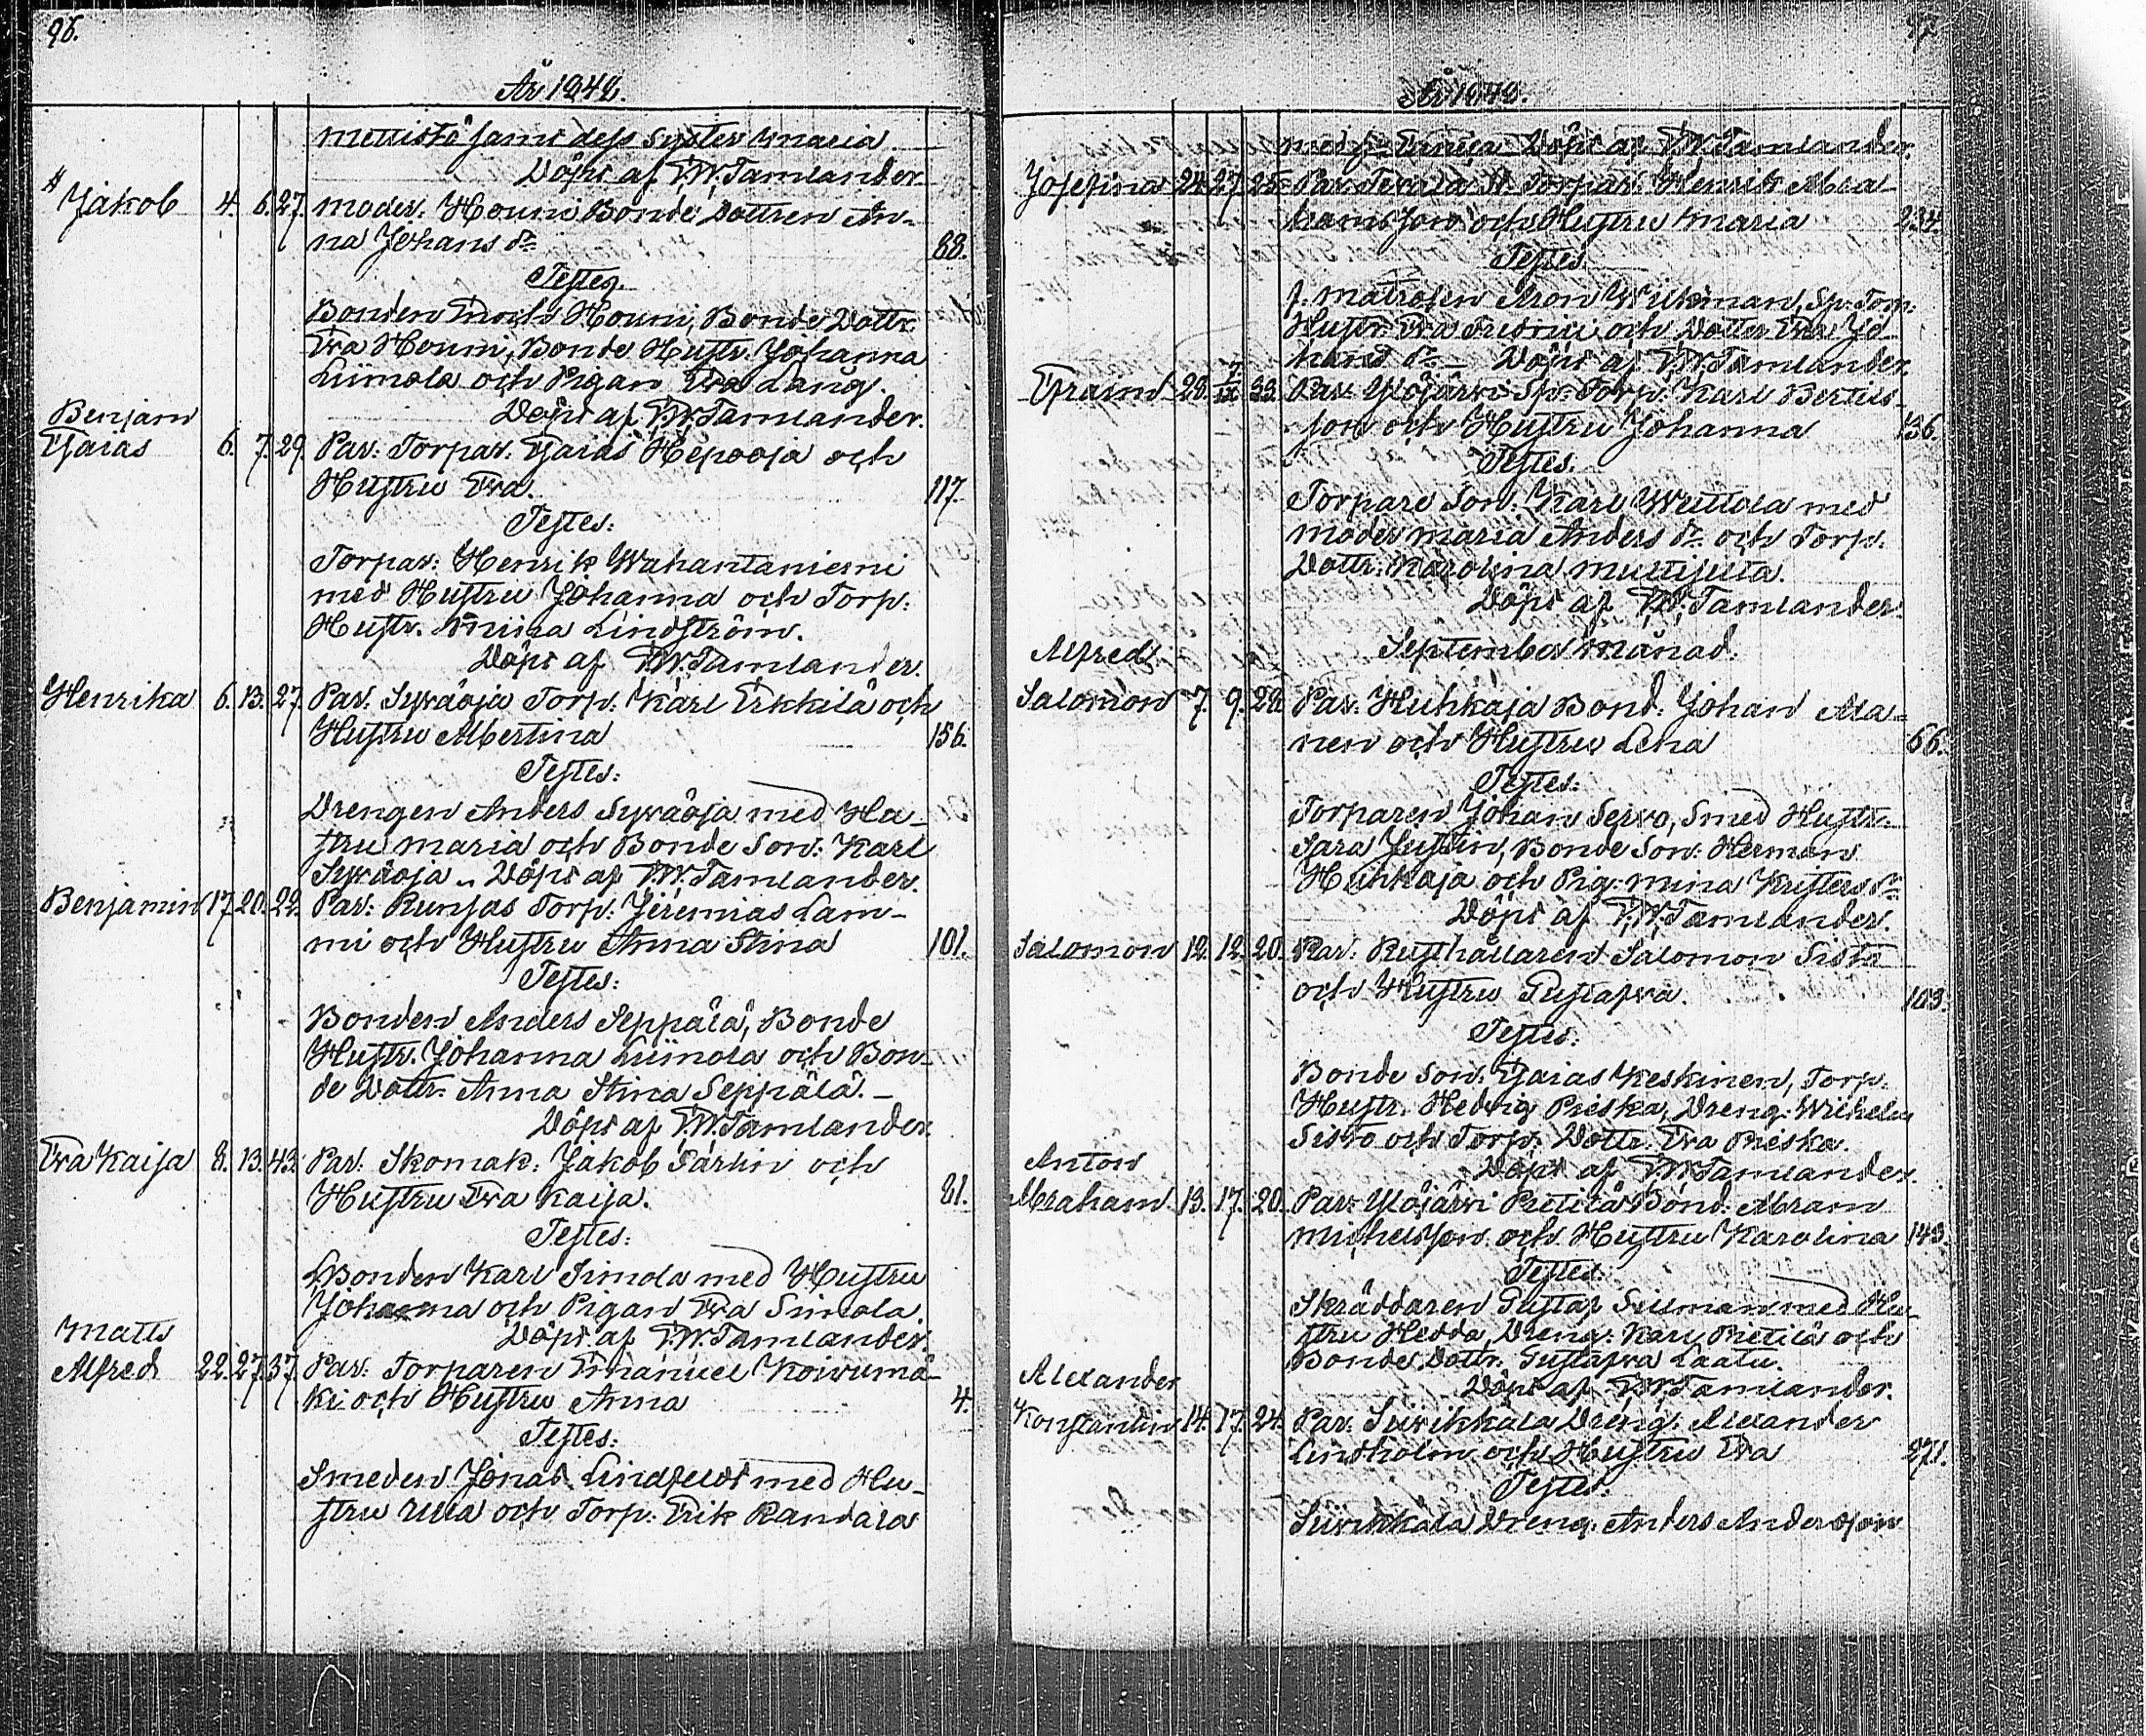 96.
År 1848.
Mettistö samt dess syster Maria.
Döpt af F.W. Tamlander
# Jakob 4. 6. 27. Moder. Houni Bonde Dottren An-
na Johans dr. 88.
Testes.
Bonden Enoch Houni, Bonde Dottr.
Eva Houni, Bonde Hustr. Johanna
Liimola och Pigan Eva Lång.
Döpt af F.W. Tamlander.
Benjam
Esaias 6. 7. 29. Par: Torpar. Esaias Hepooja och
Hustru Eva. 117.
Testes:
Torpar: Henrik Wahantaniemi
med Hustru Johanna och Torp:
Hustr. Miina Lindström.
Döpt af F.W. Tamlander.
Henrika 6. 13. 27. Par. Sywäoja Torp: Karl Erkkilä och
Hustru Albertina 156.
Testes:
Drengen Anders Sywäoja med Hu-
stru Maria och Bonde Son: Karl
Sywäoja. Döpt af F.W. Tamlander.
Benjamin 17. 20. 22. Par: Runsas Torp: Jeremias Lam-
mi och Hustru Anna Stina 101.
Testes:
Bonden Anders Seppälä, Bonde
Hustr. Johanna Liimola och Bon-
de Dottr. Anna Stina Seppälä. -
Döpt af F.W. Tamlander.
Eva Kaija 8. 13. 43. Par: Skomak: Jakob Färlin och
Hustru Eva Kaija. 81.
Testes:
Bonden Karl Simola med Hustru
Johanna och Pigan Eva Simola.
Döpt af F.W. Tamlander.
Matts
Alfred 22. 27. 37. Par: Torparen Emanuel Koiwumä-
ki och Hustru Anna 4.
Testes:
Smeden Jonas Lindfeldt med Hu-
stru Ulla och Torp: Erik Randala
97
År 1848.
Döpt af F.W. Tamlander.
Josefina 24. 27. 25. Par. Torpar. Henrik Abra-
hamsson och Hustru Maria 234.
Testes
f. Matrosen Aron Wickman, Sp: Tom:
Hustr. Eva Fredrici och Dotter Eva Jo-
hans dr. - Döpt af F.W. Tamlander.
Efraim 28. 7/IX 33. Par: Ylöjärvi Sp: Torp: Karl Bertils-
son och Hustru Johanna 136.
Testes.
Torpare Son: Karl Wettola med
Moder Maria Anders dr. och Torp:
Dottr: Karolina Multijuta.
Döpt af F.W. Tamlander.
September Månad.
Alfred
Salomon 7. 9. 28. Par: Huhkaja Bond: Johan Ala-
nen och Hustru Lena 66.
Testes:
Torparen Johan Servo, Smed Hustr.
Sara Justin, Bonde Son: Herman
Huhkaja och Pig: Mina Kristers dr.
Döpt af F.W. Tamlander.
Salomon 12. 12. 20. Par: Rusthållaren Salomon Sisto
och Hustru Gustafva. 103.
Testes:
Bonde Son: Esaias Keskinen, Torp:
Hustr. Hedvig Prèska, Dreng: Wilhelm
Sisto och Torp: Dottr. Eva Prèska.
Döpt af F.W. Tamlander.
Anton
Abraham 13. 17. 20. Par: Ylöjärvi Pietilä Bond: Abram
Michelsson och Hustru Karolina 143.
Testes:
Skräddaren Gustaf Sillman med Hu-
stru Hedda, Dreng: Karl Pietilä och
Bonde Dottr. Gustafva Laatu.
Döpt af F.W. Tamlander.
Alexander
Konstantin 14. 17. 24. Par: Siwikkala Dreng: Alexander
Lindholm och Hustru Eva 271.
Testes:
Siwikkala Dreng: Anders Andersson